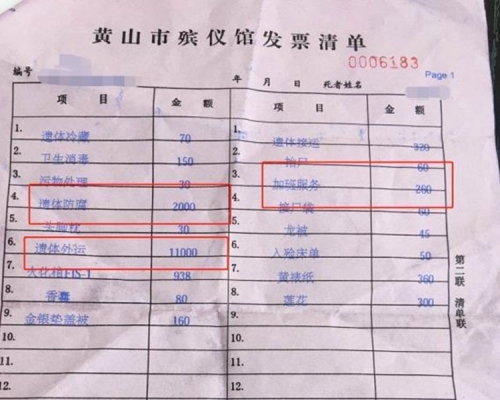 黄山市殡仪馆发票清单
0006183
Page 1
编号 年 月 日 死者姓名
项 目 金 额 项 目 金 额
1. 遗体冷藏 70 1. 遗体接运 320
2. 卫生消毒 150 2. 抬尸 60
3. 污物处理 30 3. 加班服务 260
4. 遗体防腐 2000 4. 接尸袋 60
5. 头脚枕 30 5. 龙被 45
6. 遗体外运 11000 6. 入殓床单 50
7. 火化棺FIS-1 938 7. 黄裱纸 360
8. 香薰 80 8. 莲花 300
9. 金银垫盖被 160 9.
10. 10.
11. 11.
12. 12.
第二联 清单联